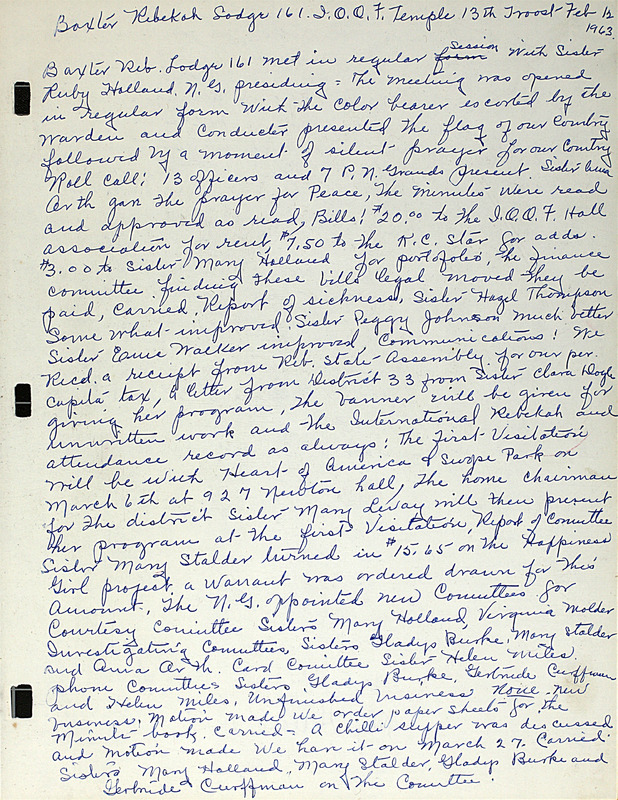 Baxter Rebekah Lodge 161. I.O.O.F. Temple 13th Troost Feb 12
1963.
Baxter Reb. Lodge 161 met in regular form Session with Sister
Ruby Holland N.G. presiding - The meeting was opened
in regular form with the color bearer escorted by the
Warden and Conductor presented the flag of our Country
followed by a moment of silent prayer for our Country
Roll call: 13 officers and 7 P.N. Grands present. Sister Anna
Arth gave the prayer for Peace, The minutes were read
and approved as read, Bills! $20.00 to the I.O.O.F. Hall
association for rent, $7.50 to the K.C. Star for adds.
$3.00 to Sister Mary Holland for portofolio, the finance
committee finding these bills legal moved they be
paid, Carried Report of sickness, Sister Hazel Thompson
Some what improved. Sister Peggy Johnson much better
Sister Walker improved Communications! We
Recd. a receipt from Reb. State Assembly for our per.
Capita tax, a letter from District 33 from Sister Clara Doyle
giving her program, The banner will be given for
unwritten work and the International Rebekah and
attendance record as always: The first Visitation
will be with Heart of America & Swope Park on
March 6th at 927 Newton hall, The home chairman
for the district Sister Mary will then present
her program at the first Visitation, Report of Committee
Sister Mary Stalder turned in $15.65 on the Happiness
Girl project, a Warrant was ordered drawn for this
Amount, The N.G. appointed new Committees for
Courtesy Comittee Sisters Mary Holland, Virginia Molder
Investigating Committees, Sisters Gladys Burke, Mary Stalder
and Anna Arth. Card Comittee Sister Helen Miles,
phone Committees Sisters, Gladys Burke, Gertrude Curffman
and Helen Miles, Unfinished business None. New
business, Motion made We order paper sheets for the
Minute book, Carried - A chilli supper was discussed
and motion made We have it on March 27. Carried.
Sisters Mary Holland, Mary Stalder, Gladys Burke and
Gertrude Curffman on the Comittee.